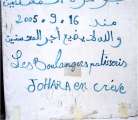 منذ 16.9.2005
والله لا يضيع أجر المحسنين
Les Boulangers patissiers
JOHARA en grève